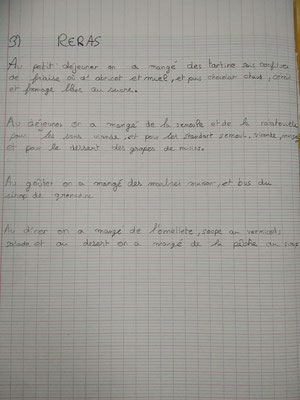 3) REPAS
Au petit déjeuner on a mangé des tartine avec confiture
de fraise ou d'abricot et miel, et puis chocolat chaud, céréale
et fromage blanc au sucre.
Au déjeuner on a mangé de la semoule et de la ratatouille
pour les sans viande, et pour les standart semoul, viande,
et pour le dessert des grapes de raisins.
Au goûter on a mangé des moulins, et bus du
sirop de grenadine.
Au dîner on a mangé de l'omelete, soupe au vermicel,
salade et au desert on a mangé de la pêche au sirop